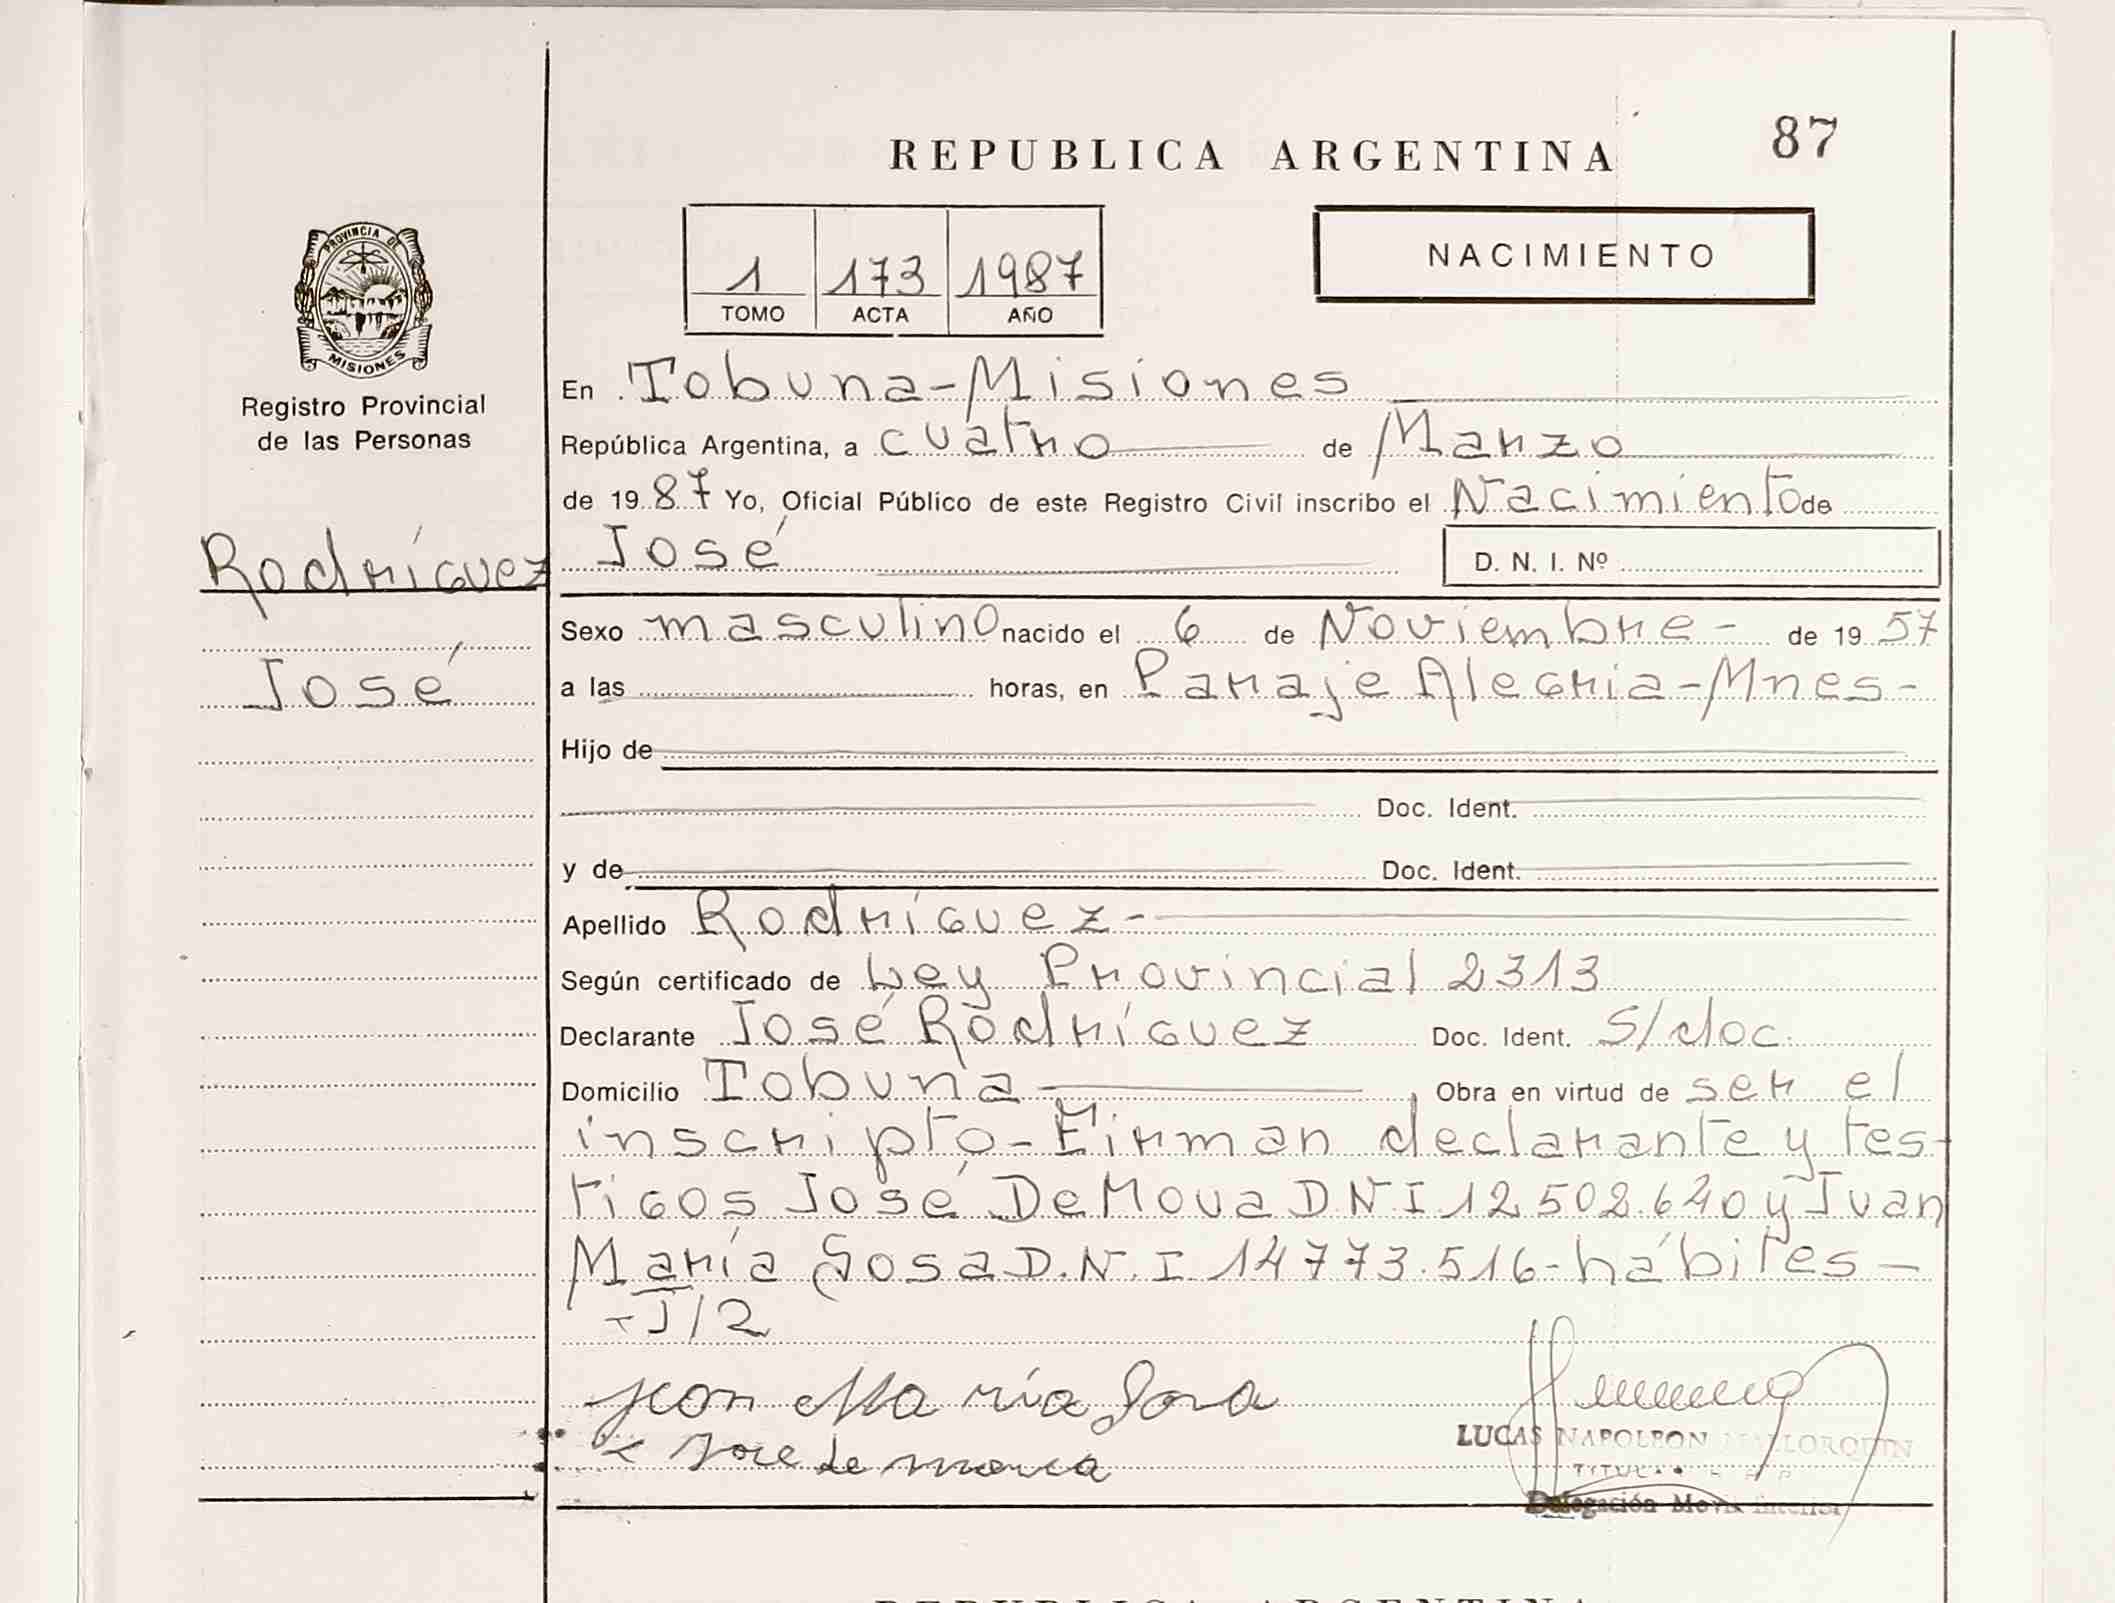 REPUBLICA ARGENTINA
87
PROVINCIA DE
MISIONES
Registro Provincial
de las Personas
1 173 1987
TOMO ACTA AÑO
NACIMIENTO
En Tobuna-Misiones
República Argentina, a cuatro de Marzo
de 1987 Yo, Oficial Público de este Registro Civil inscribo el Nacimiento de
Rodríguez
José
José
D. N. I. Nº
Sexo masculino nacido el 6 de Noviembre - de 1957
a las horas, en Paraje Alegria-Mnes-
Hijo de
Doc. Ident.
y de Doc. Ident.
Apellido Rodríguez-
Según certificado de Ley Provincial 2313
Declarante José Rodríguez Doc. Ident. S/doc.
Domicilio Tobuna Obra en virtud de ser el
inscripto-Firman declarante y tes-
tigos José De Moua D.N.I 12.502.640 y Juan
María Sosa D.N.I 14773.516-hábiles-
-J/2
Juan María Sosa
Jose de moua
LUCAS NAPOLEON MALLORQUIN
Delegación Movil Interior
REPUBLICA ARGENTINA